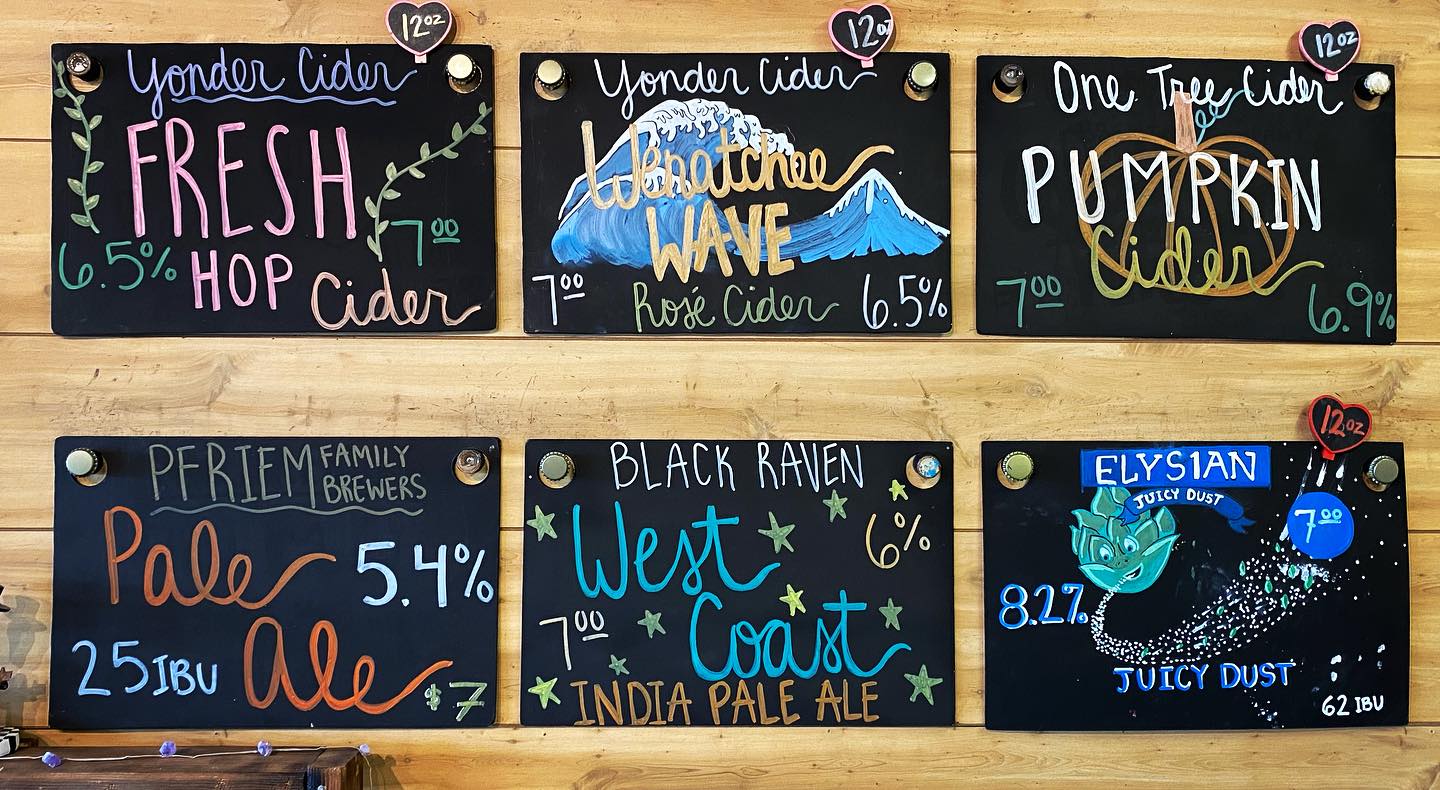 12oz
Yonder Cider
FRESH
6.5%
HOP
7.00
Cider
12oz
Yonder Cider
Wenatchee
WAVE
7.00
Rosé Cider
6.5%
12oz
One Tree Cider
PUMPKIN
Cider
7.00
6.9%
PFRIEM FAMILY
BREWERS
Pale
5.4%
25 IBU
Ale
$7
BLACK RAVEN
West
6%
7.00
Coast
INDIA PALE ALE
12oz
ELYSIAN
JUICY DUST
7.00
8.2%
JUICY DUST
62 IBU